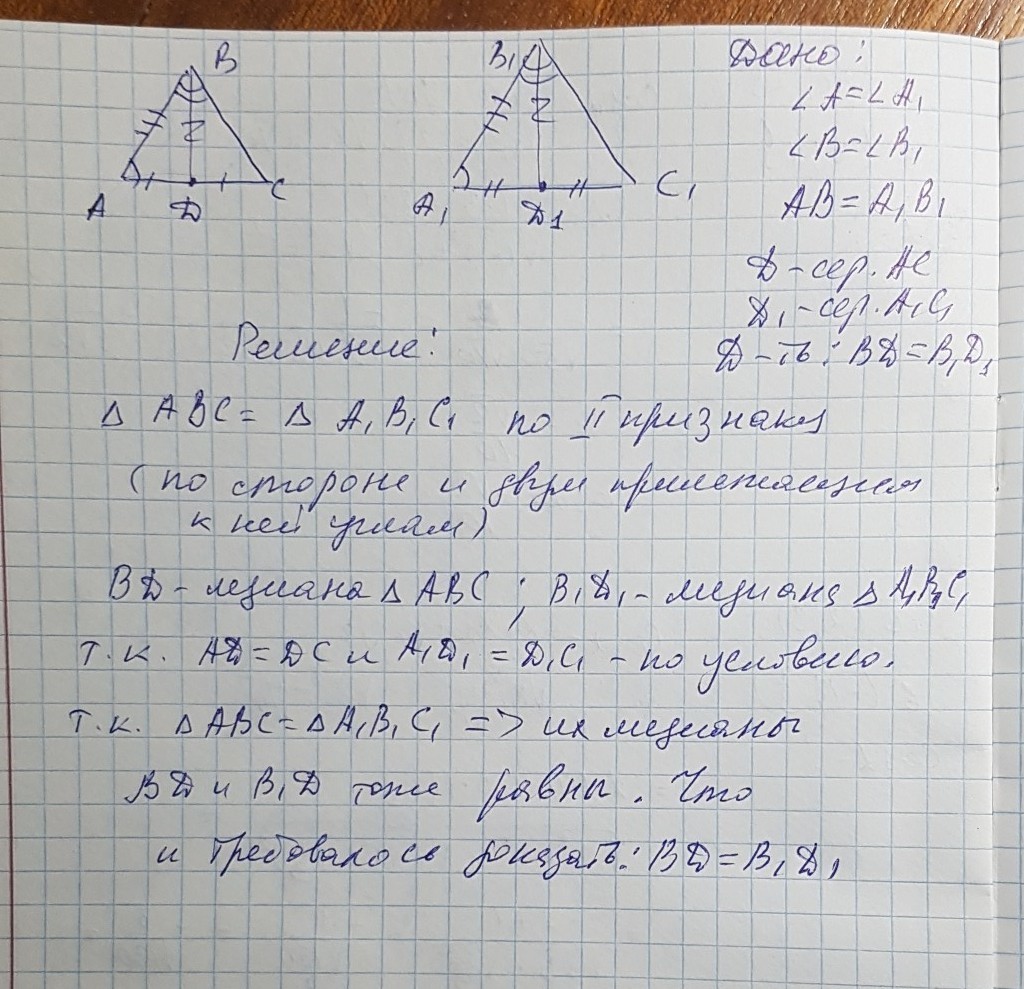 B
A
Д
C
B₁
A₁
Д₁
C₁
Дано:
∠A=∠A₁
∠B=∠B₁
AB=A₁B₁
Д-сер. AC
Д₁-сер. A₁C₁
Д-ть: BД=B₁Д₁
Решение:
Δ ABC = Δ A₁B₁C₁ по II признаку
(по стороне и двум прилежащим
к ней углам)
BД-медиана Δ ABC ; B₁Д₁-медиана Δ A₁B₁C₁
т.к. AД=ДC и A₁Д₁=Д₁C₁ - по условию.
т.к. ΔABC=ΔA₁B₁C₁ => их медианы
BД и B₁Д тоже равны. Что
и требовалось доказать: BД=B₁Д₁